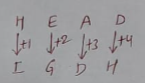 H E A D
↓+1 ↓+2 ↓+3 ↓+4
I G D H